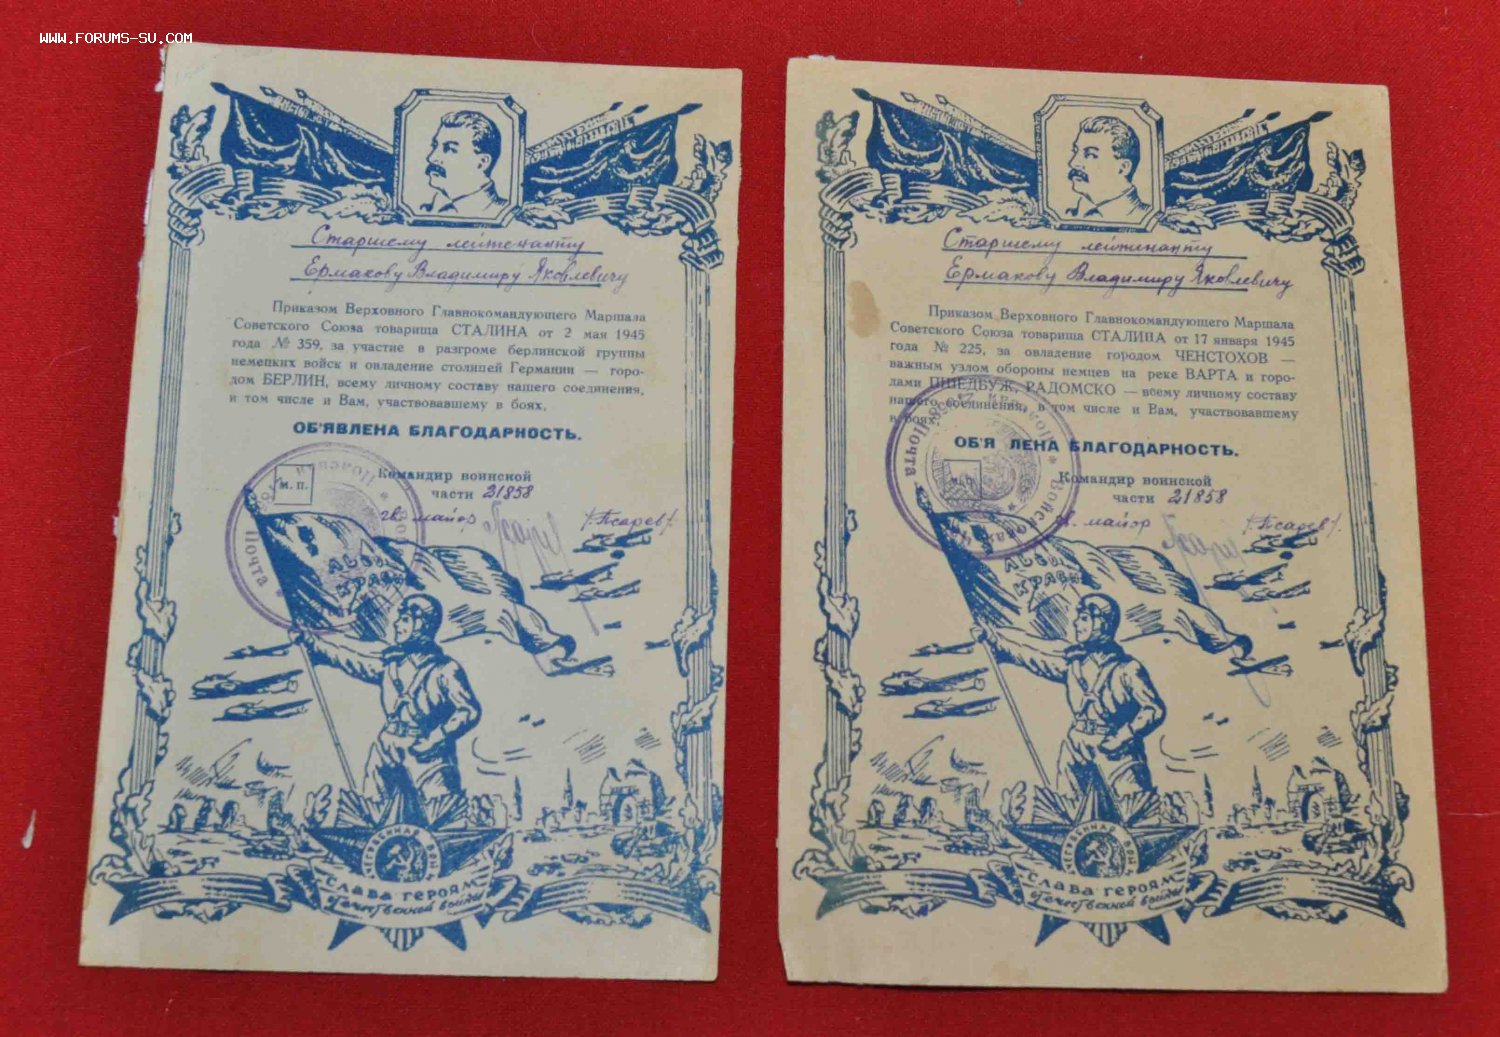 WWW.FORUMS-SU.COM
Старшему лейтенанту
Ермакову Владимиру Яковлевичу
Приказом Верховного Главнокомандующего Маршала
Советского Союза товарища СТАЛИНА от 2 мая 1945
года № 359, за участие в разгроме берлинской группы
немецких войск и овладение столицей Германии — горо-
дом БЕРЛИН, всему личному составу нашего соединения,
и том числе и Вам, участвовавшему в боях,
ОБ'ЯВЛЕНА БЛАГОДАРНОСТЬ.
М. П.
Командир воинской
части 21858
гв. майор /Псарев/
Почта
СЛАВА ГЕРОЯМ
Отечественной войны
Старшему лейтенанту
Ермакову Владимиру Яковлевичу
Приказом Верховного Главнокомандующего Маршала
Советского Союза товарища СТАЛИНА от 17 января 1945
года № 225, за овладение городом ЧЕНСТОХОВ —
важным узлом обороны немцев на реке ВАРТА и горо-
дами ПШЕДБУЖ, РАДОМСКО — всему личному составу
нашего соединения, в том числе и Вам, участвовавшему
в боях,
ОБ'Я ЛЕНА БЛАГОДАРНОСТЬ.
Командир воинской
части 21858
гв. майор /Псарев/
Полевая Почта
Войсковая
СЛАВА ГЕРОЯМ
Отечественной войны